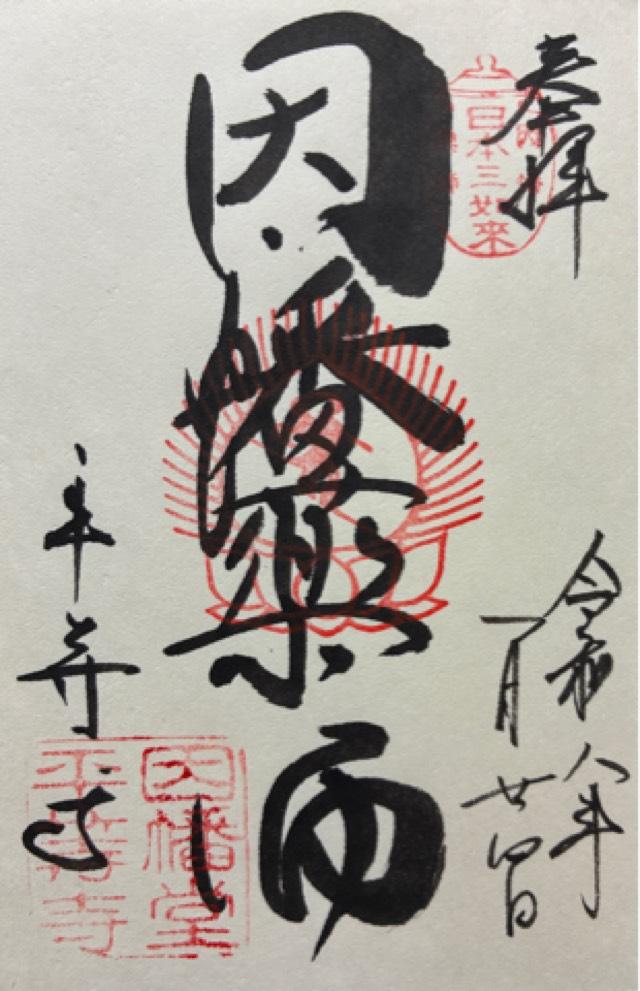 奉拝
日本三如來
令和八年
一月廿四日
因幡薬師
平等寺
因幡堂
平等寺